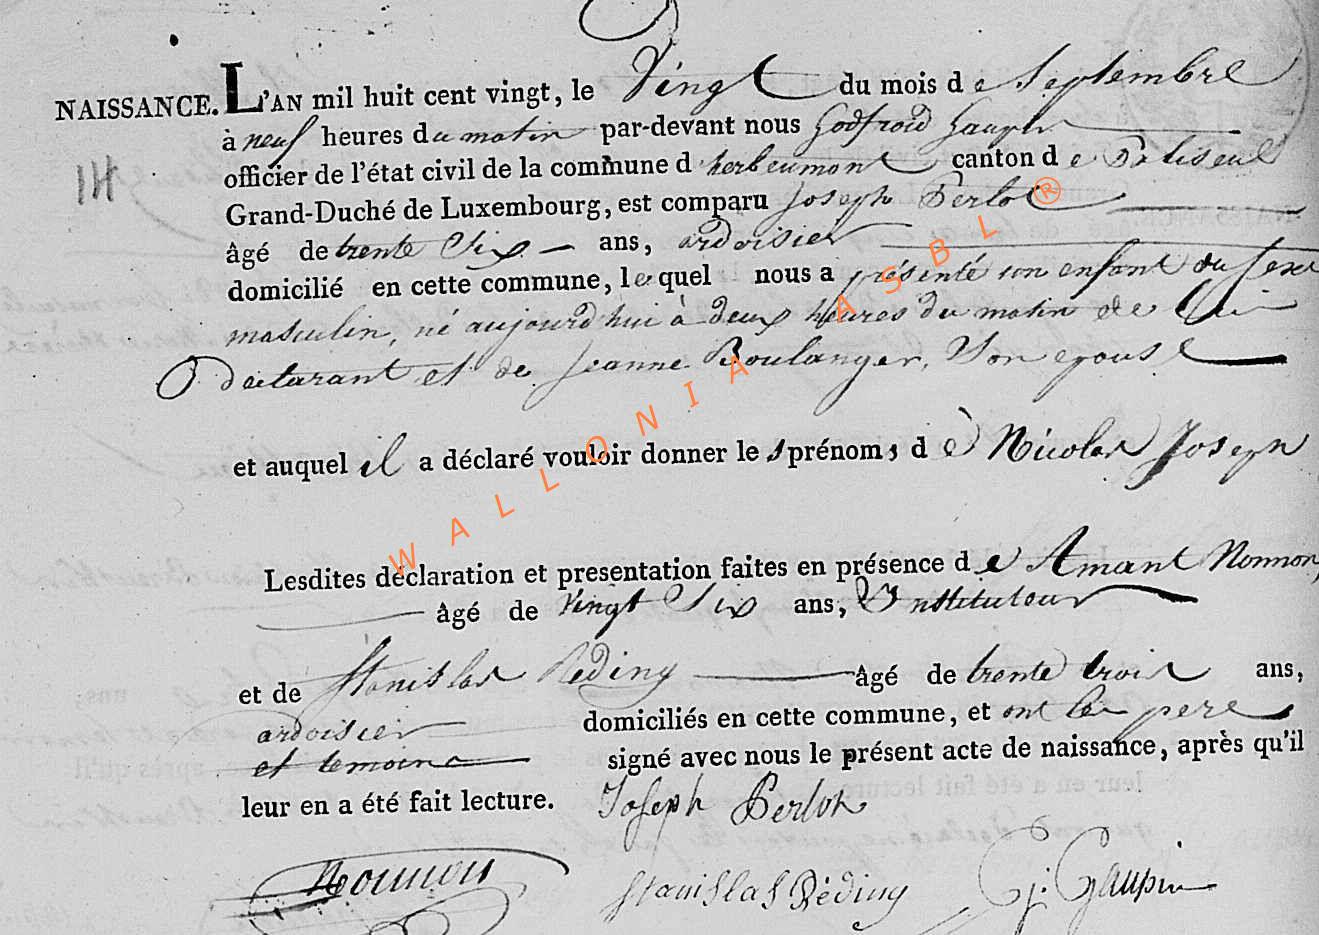 NAISSANCE. L'AN mil huit cent vingt, le Vingt du mois de Septembre
à neuf heures du matin par-devant nous Godfroid Gaupin
officier de l'état civil de la commune d'herbeumont canton de Paliseul
Grand-Duché de Luxembourg, est comparu Joseph Perlot
âgé de trente Six ans, ardoisier
domicilié en cette commune, lequel nous a présenté un enfant du sexe
masculin, né aujourd'hui à deux heures du matin de lui
déclarant et de Jeanne Boulanger, Son epouse
et auquel il a déclaré vouloir donner les prénoms de Nicolas Joseph
Lesdites déclaration et presentation faites en présence de Amant Nonnon,
âgé de Vingt Six ans, Instituteur
et de Stanislas Réding âgé de trente trois ans,
ardoisier domiciliés en cette commune, et ont les pere
et temoins signé avec nous le présent acte de naissance, après qu'il
leur en a été fait lecture. Joseph Perlot
Nonnon Stanislas Réding G. Gaupin
114
WALLONIA ASBL ®